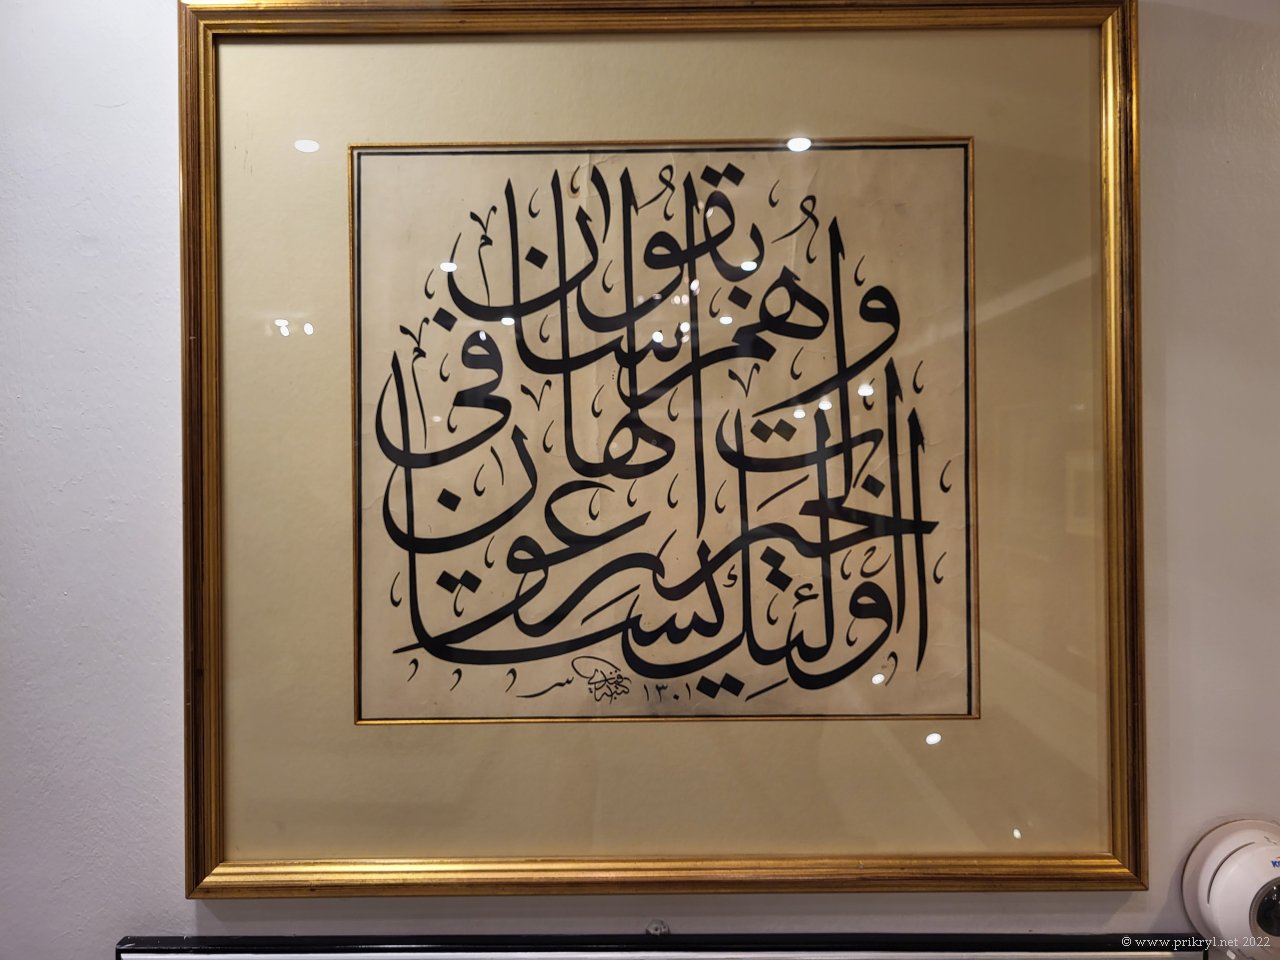 اولئك يسارعون فى
الخيرات وهم لها سابقون
١٣٠١
© www.prikryl.net 2022